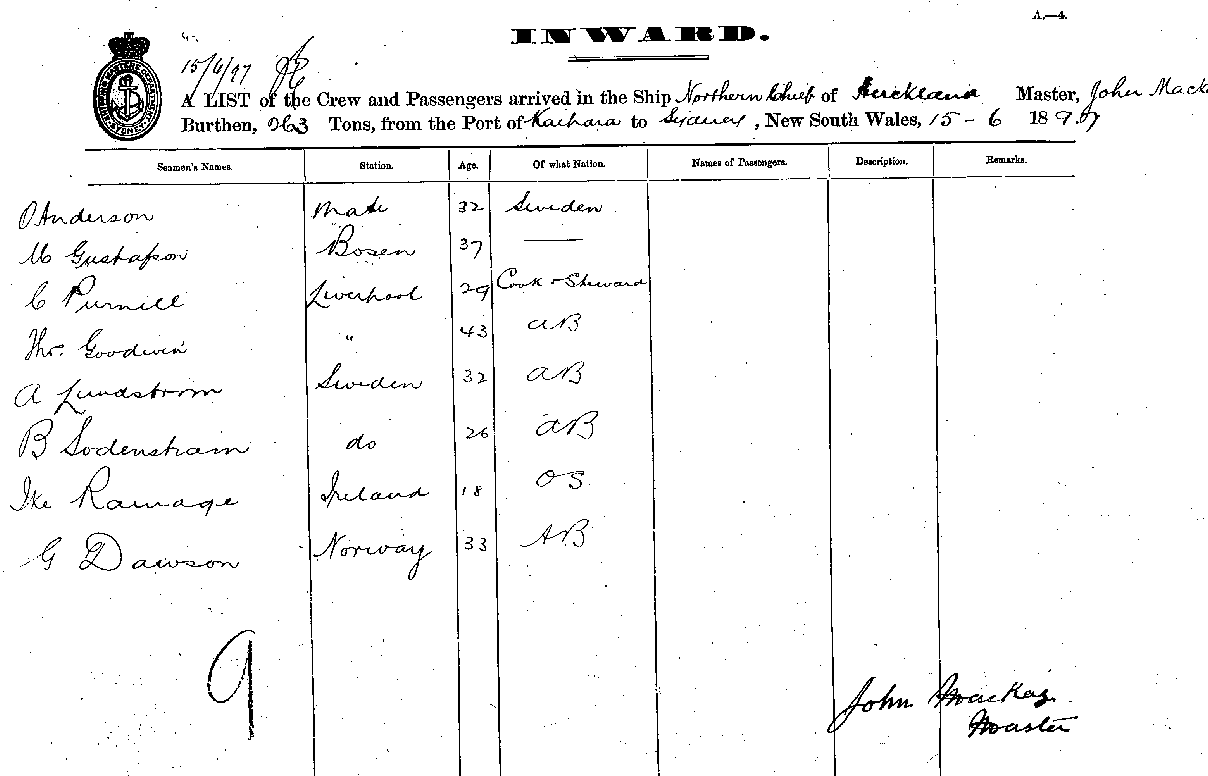 A.—4.
INWARD.
15/6/97
A LIST of the Crew and Passengers arrived in the Ship Northern Chief of Auckland Master, John Mack
Burthen, 263 Tons, from the Port of Kaihara to Sydney, New South Wales, 15 - 6 1897
Seamen's Names. Station. Age. Of what Nation. Names of Passengers. Description. Remarks.
O Anderson Mate 32 Sweden
Gustafson Bosen 37 ——
C Purnill Liverpool 29 Cook & Steward
Thos. Goodwin " 43 AB
A Lundstrom Sweden 32 AB
B Sodenstram do 26 AB
Ike Ramage Ireland 18 OS
G Dawson Norway 33 AB
9
John Mackay
Master